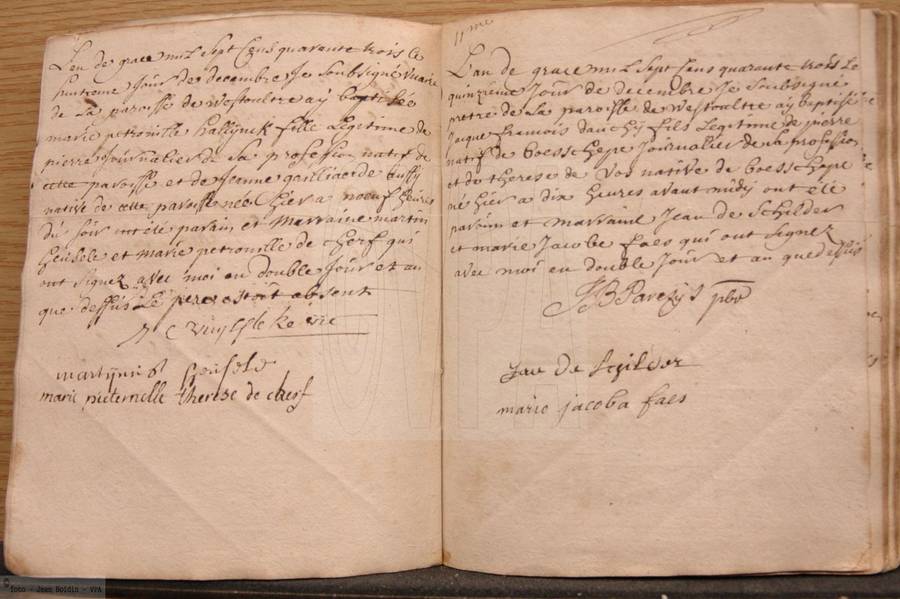 L'en de grace mil Sept Cens quarante trois le
huitieme Jour de decembre Je Soubsigné vicaire
de La paroisse de Westoultre aÿ baptisée
marie petronille hallijnck fille Legitime de
pierre Journalier de Sa profession natif de
cette paroisse et de Jeanne
native de cette paroisse née hier a noeuf heures
du Soir ont été parain et Marraine martin
Geusele et marie petronille de Cherf qui
ont Signez avec moi en double Jour et an
que dessus Le pere estoit absent
martijnus Geusele
marie pieternelle therese de cherf
11me
L'an de grace mil Sept Cens quarante trois Le
quinzieme Jour de decembre je Soubsigné
pretre de La paroisse de Westoultre aÿ baptisé
Jacque francois dauchij fils Legitime de pierre
natif de boesschepe Journalier de Sa profession
et de therese de Vos native de boesschepe
né hier a dix heures avant midÿ ont été
parain et marraine Jean de Schilder
et marie Jacobe faes qui ont signez
avec moi en double Jour et an que dessus
JB Parezijs pbr
Jan De Scilder
marie jacoba faes
© foto - Jean Boidin - VPA
VPA